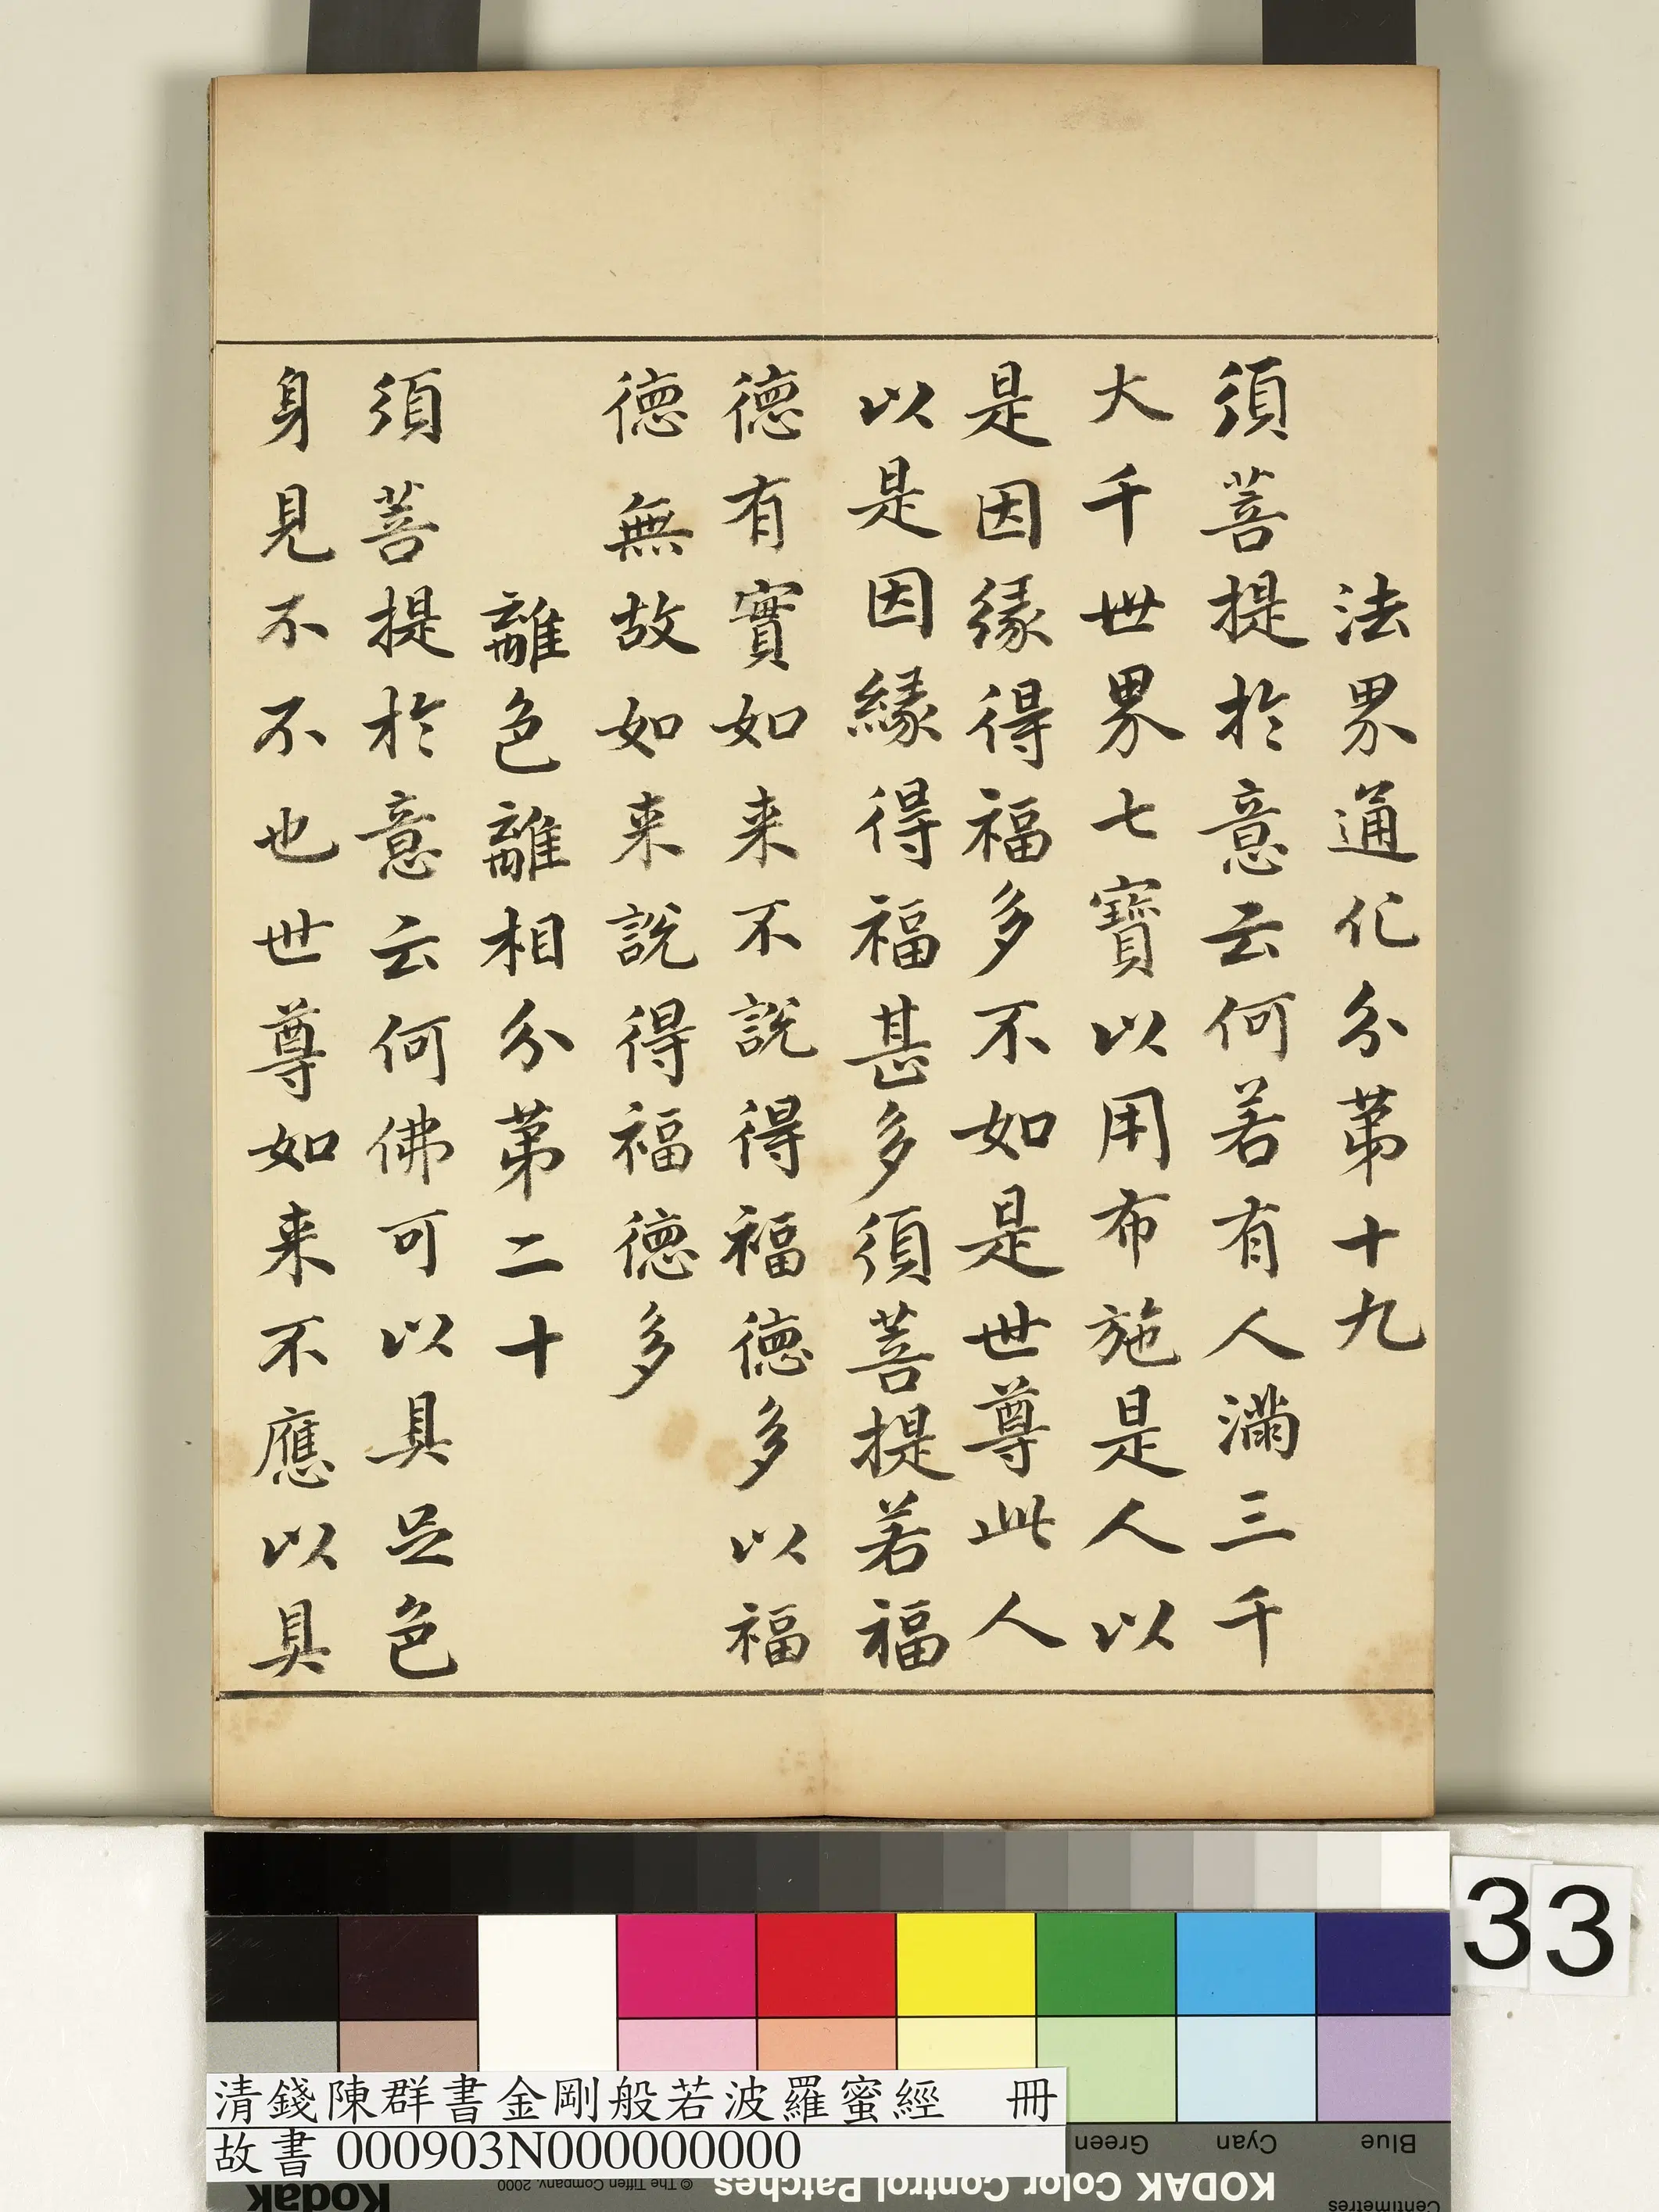 法界通化分第十九
須菩提於意云何若有人滿三千
大千世界七寶以用布施是人以
是因緣得福多不如是世尊此人
以是因緣得福甚多須菩提若福
德有實如来不說得福德多以福
德無故如来說得福德多
離色離相分第二十
須菩提於意云何佛可以具足色
身見不不也世尊如来不應以具
33
清錢陳群書金剛般若波羅蜜經 冊
故書 000903N000000000
Green
Cyan
Blue
Kodak
© The Tiffen Company, 2000
KODAK Color Control Patches
Centimetres